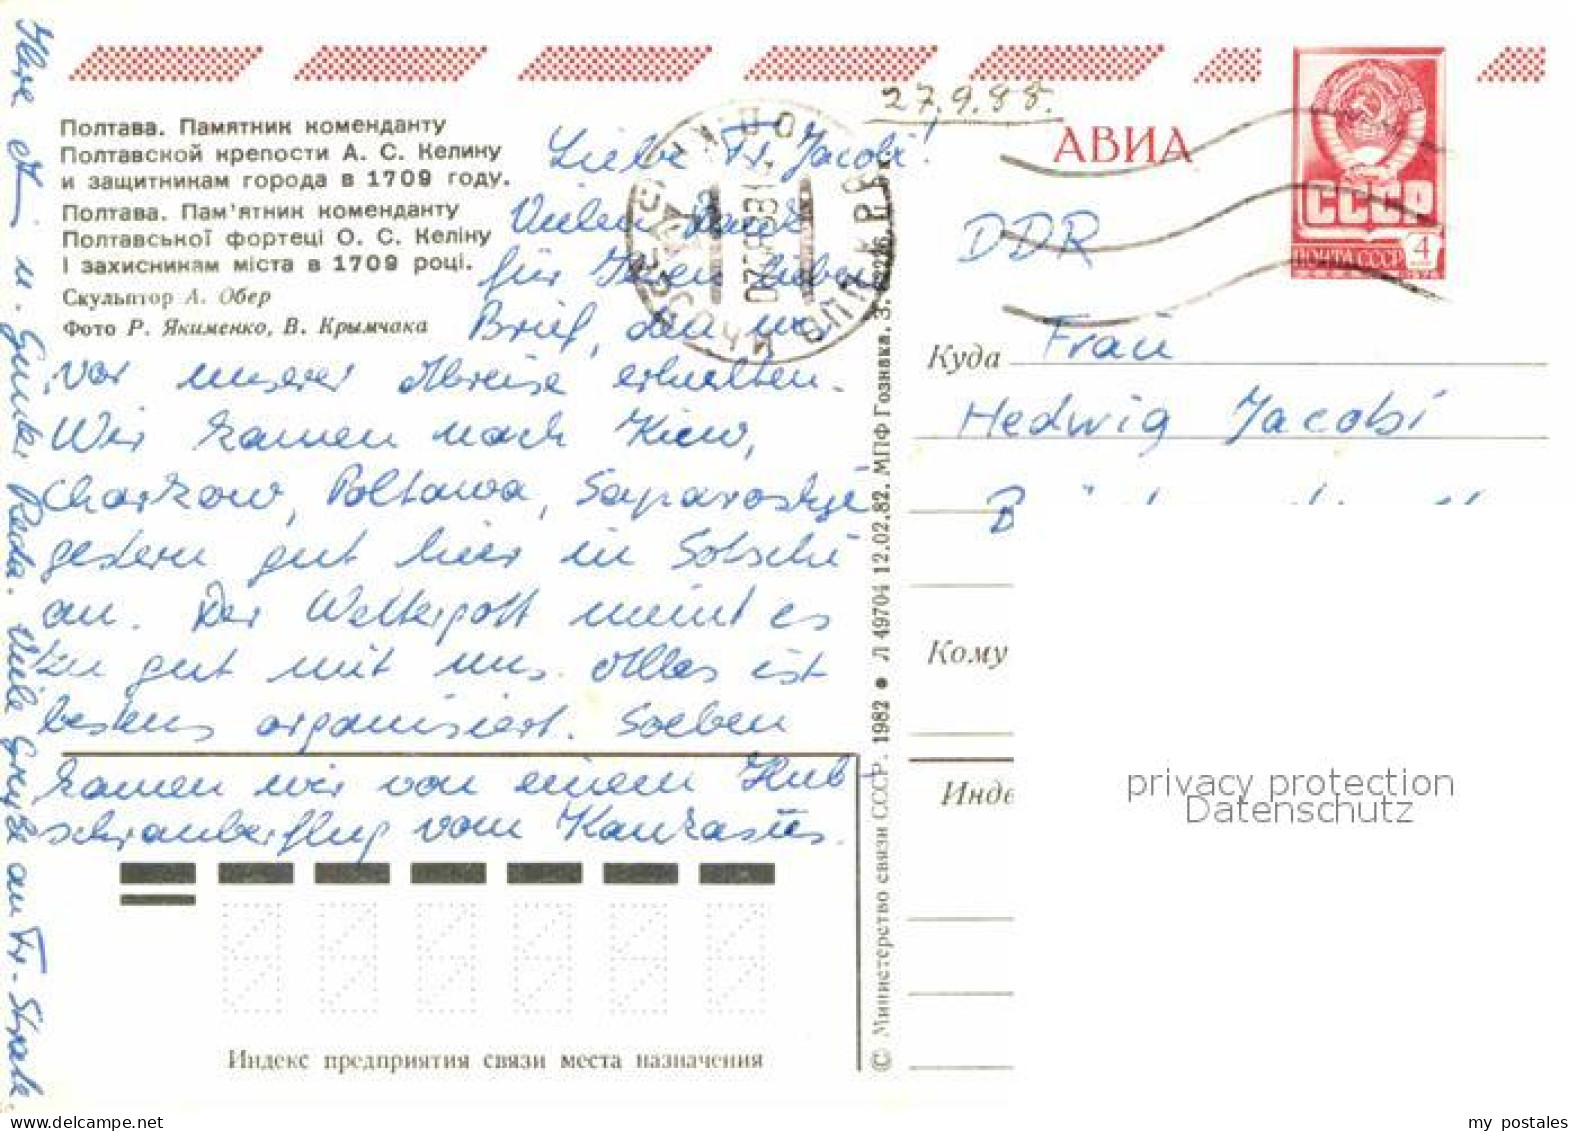 27.9.88.
АВИА
СССР
ПОЧТА СССР 4
Полтава. Памятник коменданту
Полтавской крепости А. С. Келину
и защитникам города в 1709 году.
Полтава. Пам'ятник коменданту
Полтавської фортеці О. С. Келіну
і захисникам міста в 1709 році.
Скульптор А. Обер
Фото Р. Якименко, В. Крымчака
Liebe Fr. Jacobi!
Vielen Dank
für Ihren lieben
Brief, den wir
vor unserer Abreise erhielten.
Wir kamen nach Kiew,
Charkow, Poltawa, Saparoshje
gestern gut hier in Sotschi
an. Der Wettergott meint es
zu gut mit uns. Alles ist
bestens organisiert. Soeben
kamen wir von einem Hub-
schrauberflug vom Kaukasus.
u. Günter Reda. Viele Grüße an Fr. Strade.
DDR
Куда Frau
Hedwig Jacobi
Кому
Инде
privacy protection
Datenschutz
Индекс предприятия связи места назначения
© Министерство связи СССР. 1982 • Л 49704 12.02.82. МПФ Гознака. З.
my postales